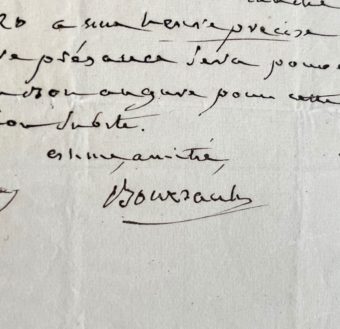 20 a une heure precise
présance sera pour
bon augure pour cette
subite.
estime, amitié,
Boursault